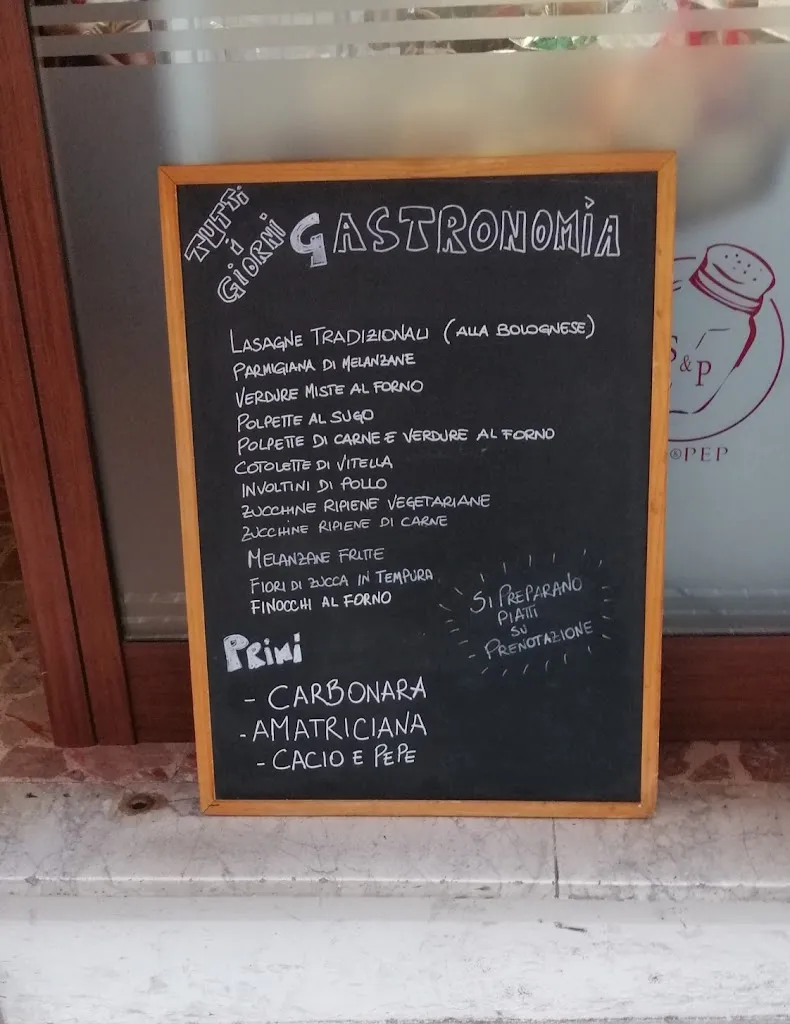 TUTTi
i
GiORNi
GASTRONOMÌA
LASAGNE TRADIZIONALI (ALLA BOLOGNESE)
PARMIGIANA DI MELANZANE
VERDURE MISTE AL FORNO
POLPETTE AL SUGO
POLPETTE DI CARNE E VERDURE AL FORNO
COTOLETTE DI VITELLA
INVOLTINI DI POLLO
ZUCCHINE RIPIENE VEGETARIANE
ZUCCHINE RIPIENE DI CARNE
MELANZANE FRITTE
FIORI DI ZUCCA IN TEMPURA
FINOCCHI AL FORNO
SI PREPARANO
PIATTI
SU
PRENOTAZIONE
PRiMi
- CARBONARA
- AMATRICIANA
- CACIO E PEPE
S&P
PEP